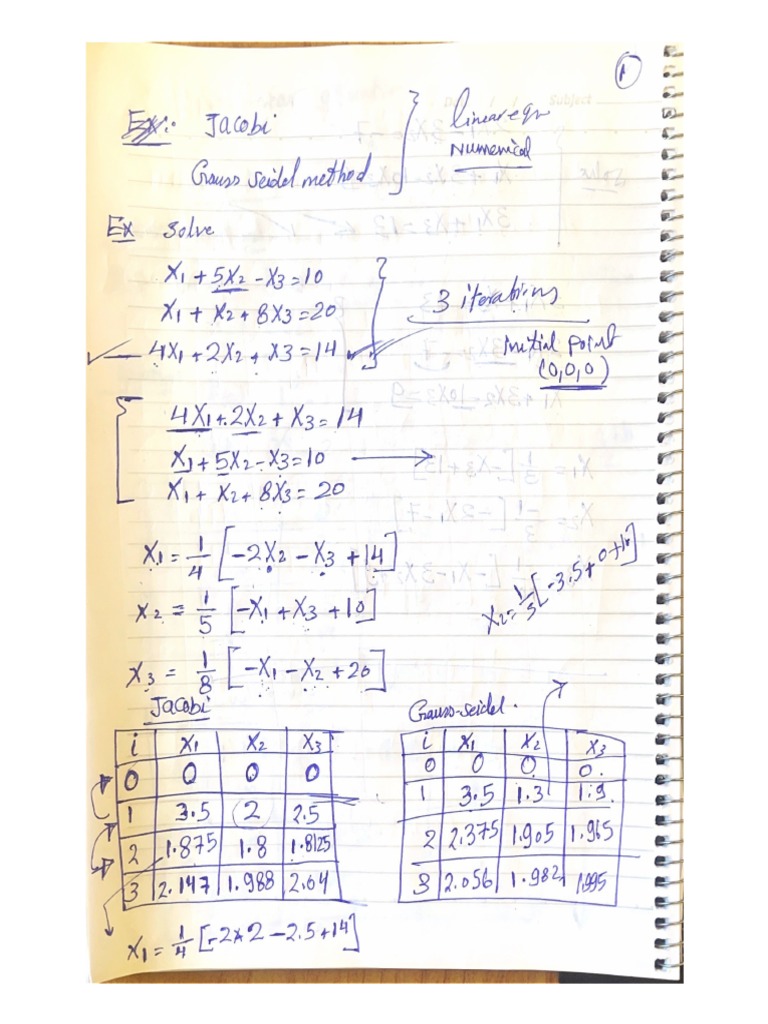 1
Ex:- Jacobi
Gauss Seidel method
linear eqn
Numerical
Ex Solve
X1 + 5X2 - X3 = 10
X1 + X2 + 8X3 = 20
4X1 + 2X2 + X3 = 14
3 iterations
Initial point
(0,0,0)
4X1 + 2X2 + X3 = 14
X1 + 5X2 - X3 = 10
X1 + X2 + 8X3 = 20
X1 = 1/4 [-2X2 - X3 + 14]
X2 = 1/5 [-X1 + X3 + 10]
X2 = 1/5 [-3.5 + 0 + 10]
X3 = 1/8 [-X1 - X2 + 20]
Jacobi
i X1 X2 X3
0 0 0 0
1 3.5 2 2.5
2 1.875 1.8 1.8125
3 2.147 1.988 2.04
X1 = 1/4 [-2*2 - 2.5 + 14]
Gauss-Seidel.
i X1 X2 X3
0 0 0 0.
1 3.5 1.3 1.9
2 2.375 1.905 1.965
3 2.056 1.982 1.995